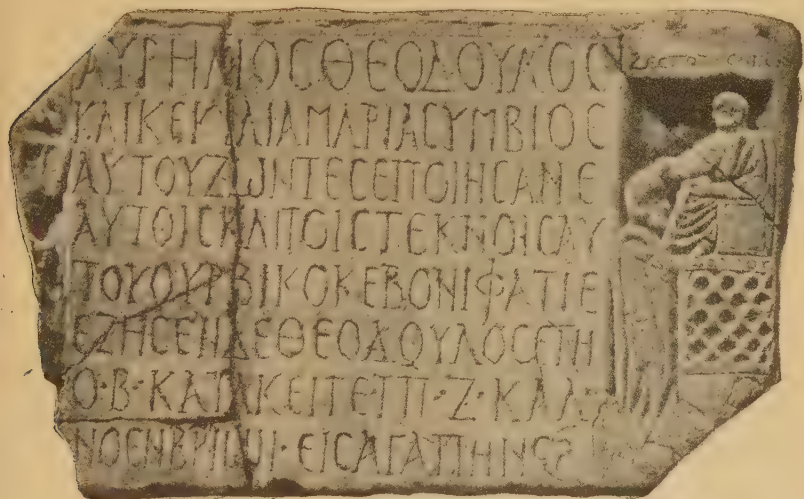 ΑΥΡΗΛΙΟϹΘΕΟΔΟΥΛΟϹ
ΚΑΙΚΕΚΙΛΙΑΜΑΡΙΑϹΥΜΒΙΟϹ
ΑΥΤΟΥΖΩΝΤΕϹΕΠΟΙΗϹΑΝΕ
ΑΥΤΟΙϹΚΑΙΤΟΙϹΤΕΚΝΟΙϹΑΥ
ΤΟΥΟΥΡΒΙΚΟΚΕΒΟΝΙΦΑΤΙΕ
ΕΖΗϹΕΝΔΕΘΕΟΔΟΥΛΟϹΕΤΗ
Ο·Β·ΚΑΤΑΚΕΙΤΕΠΠ·Ζ·ΚΑΛ
ΝΟΕΝΒΡΙΩΝ·ΕΙϹΑΓΑΠΗΝ